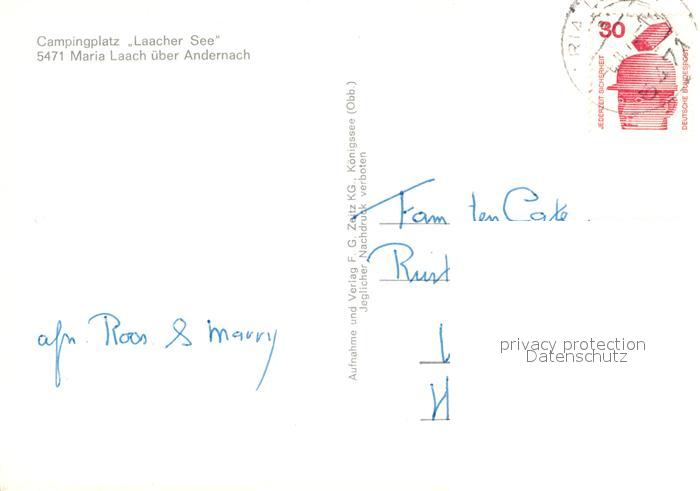 Campingplatz „Laacher See"
5471 Maria Laach über Andernach
30
JEDERZEIT SICHERHEIT
DEUTSCHE BUNDESPOST
Aufnahme und Verlag F. G. Zeitz KG., Königssee (Obb.)
Jeglicher Nachdruck verboten
Fam ten Cate.
afn. Roos & Marry
privacy protection
Datenschutz